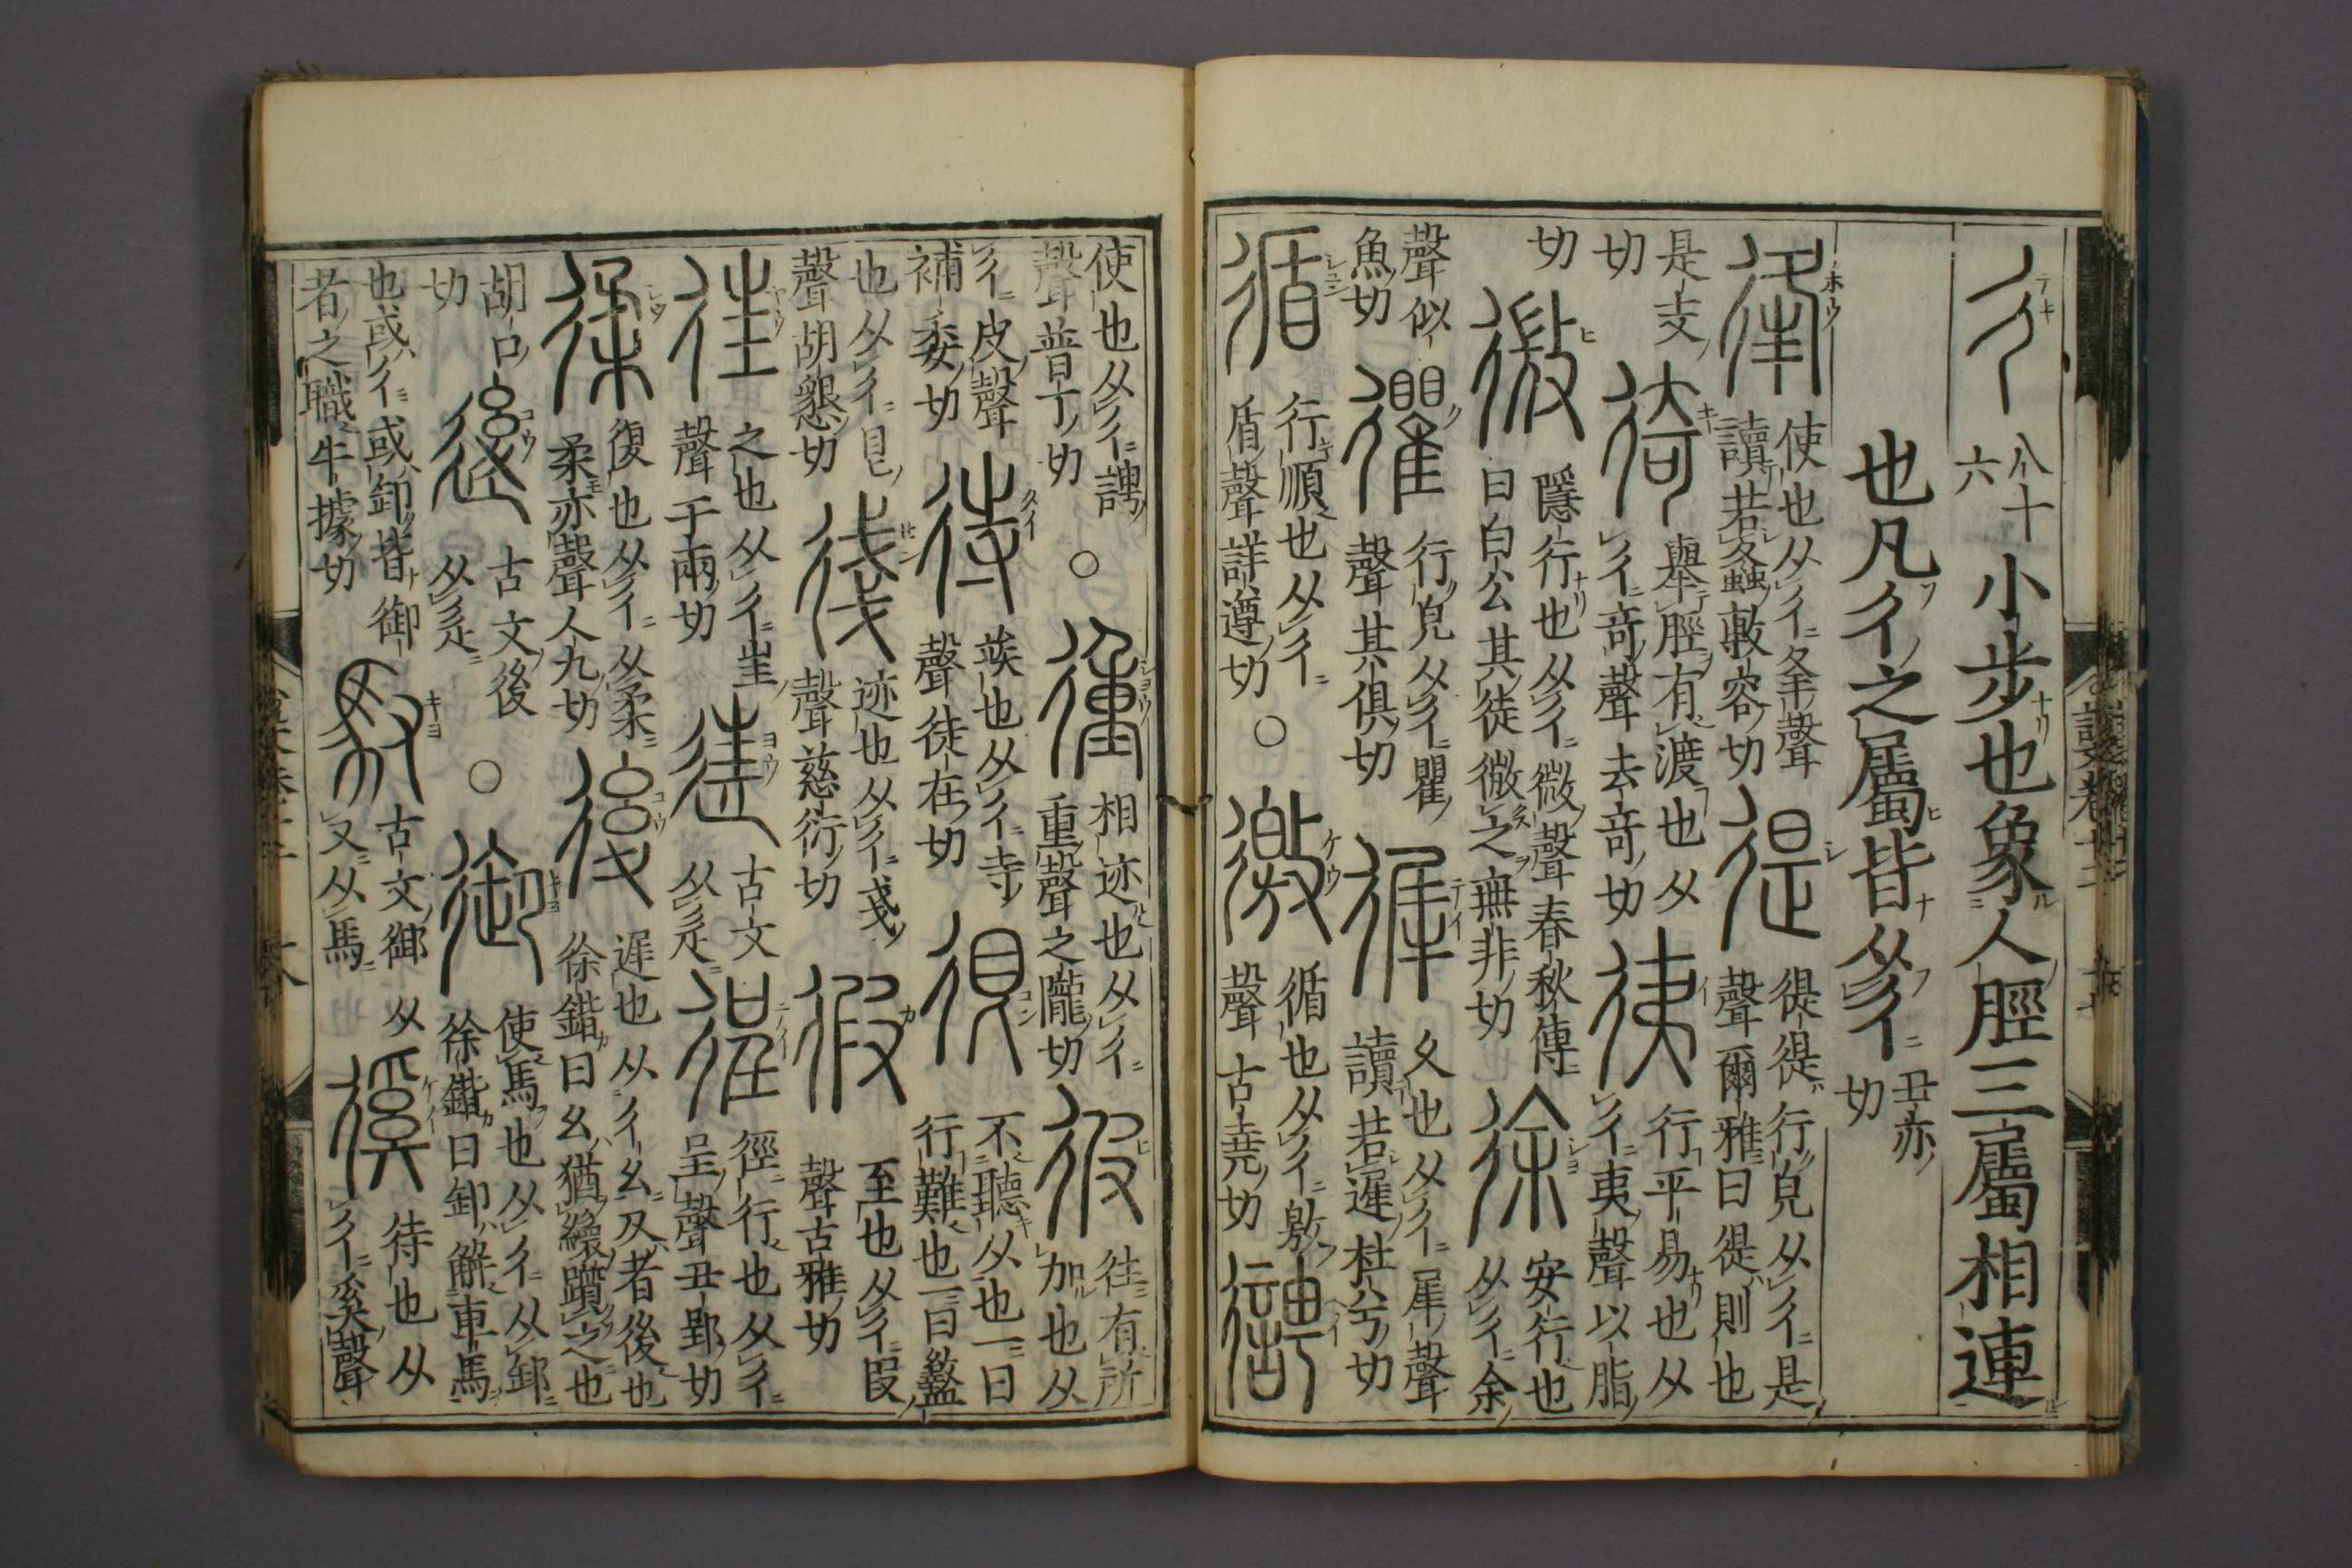 彳 八十六 小步也象人脛三屬相連
也凡彳之屬皆从彳 丑亦切
㣔 使也从彳夆聲讀若螽敷容切 徥 徥徥行皃从彳是聲爾雅曰徥則也
是支切 徛 舉脛有渡也从彳奇聲去奇切 徲 行平易也从彳夷聲以脂
切 𢕧 隱行也从彳𢼸聲春秋傳曰白公其徒𢕧之無非切 徐 安行也从彳余
聲似魚切 忂 行皃从彳瞿聲其俱切 徲 久也从彳犀聲讀若遲杜兮切
循 行順也从彳盾聲詳遵切 ○ 徼 循也从彳敫聲古堯切 德
使也从彳諤聲普丁切 ○ 徸 相迹也从彳重聲之隴切 彼 往有所加也从
彳皮聲補委切 待 竢也从彳寺聲徒在切 很 不聽从也一曰行難也一曰盭
也从彳皀聲胡懇切 後 迹也从彳戔聲慈衍切 徦 至也从彳叚聲古雅切
往 之也从彳㞷聲于兩切 𨓹 古文从辵 徎 徑行也从彳呈聲丑郢切
徖 復也从彳从柔柔亦聲人九切 後 遲也从彳幺夊者後也徐鍇曰幺猶䋣躓之也
胡口切 𨒥 古文後从辵 ○ 御 使馬也从彳从卸徐鍇曰卸解車馬
也或彳或卸皆御者之職牛據切 馭 古文御从又从馬 徯 待也从彳奚聲